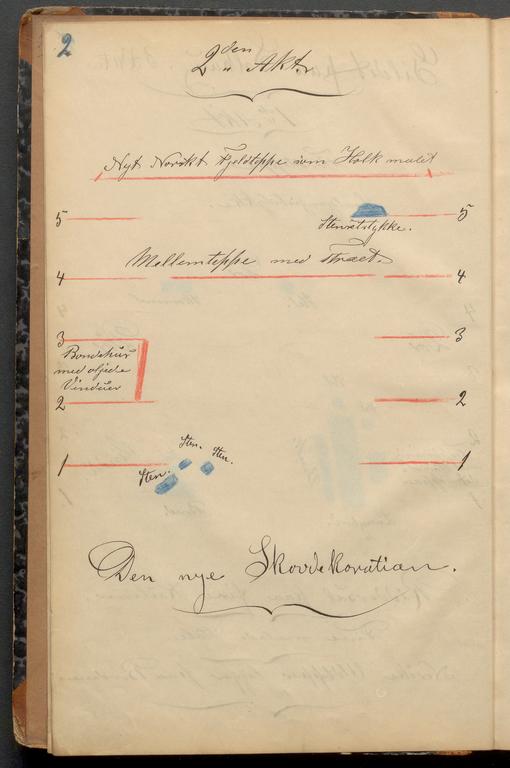 2
2den Akt.
Nyt Norskt Fjeldteppe som Holk malet
5 5
Stensætstykke.
Mellemteppe med Træet.
4 4
3 3
Bondehus
med oljede
Vinduer
2 2
Sten. Sten.
1 Sten. 1
Den nye Skovdekoration.